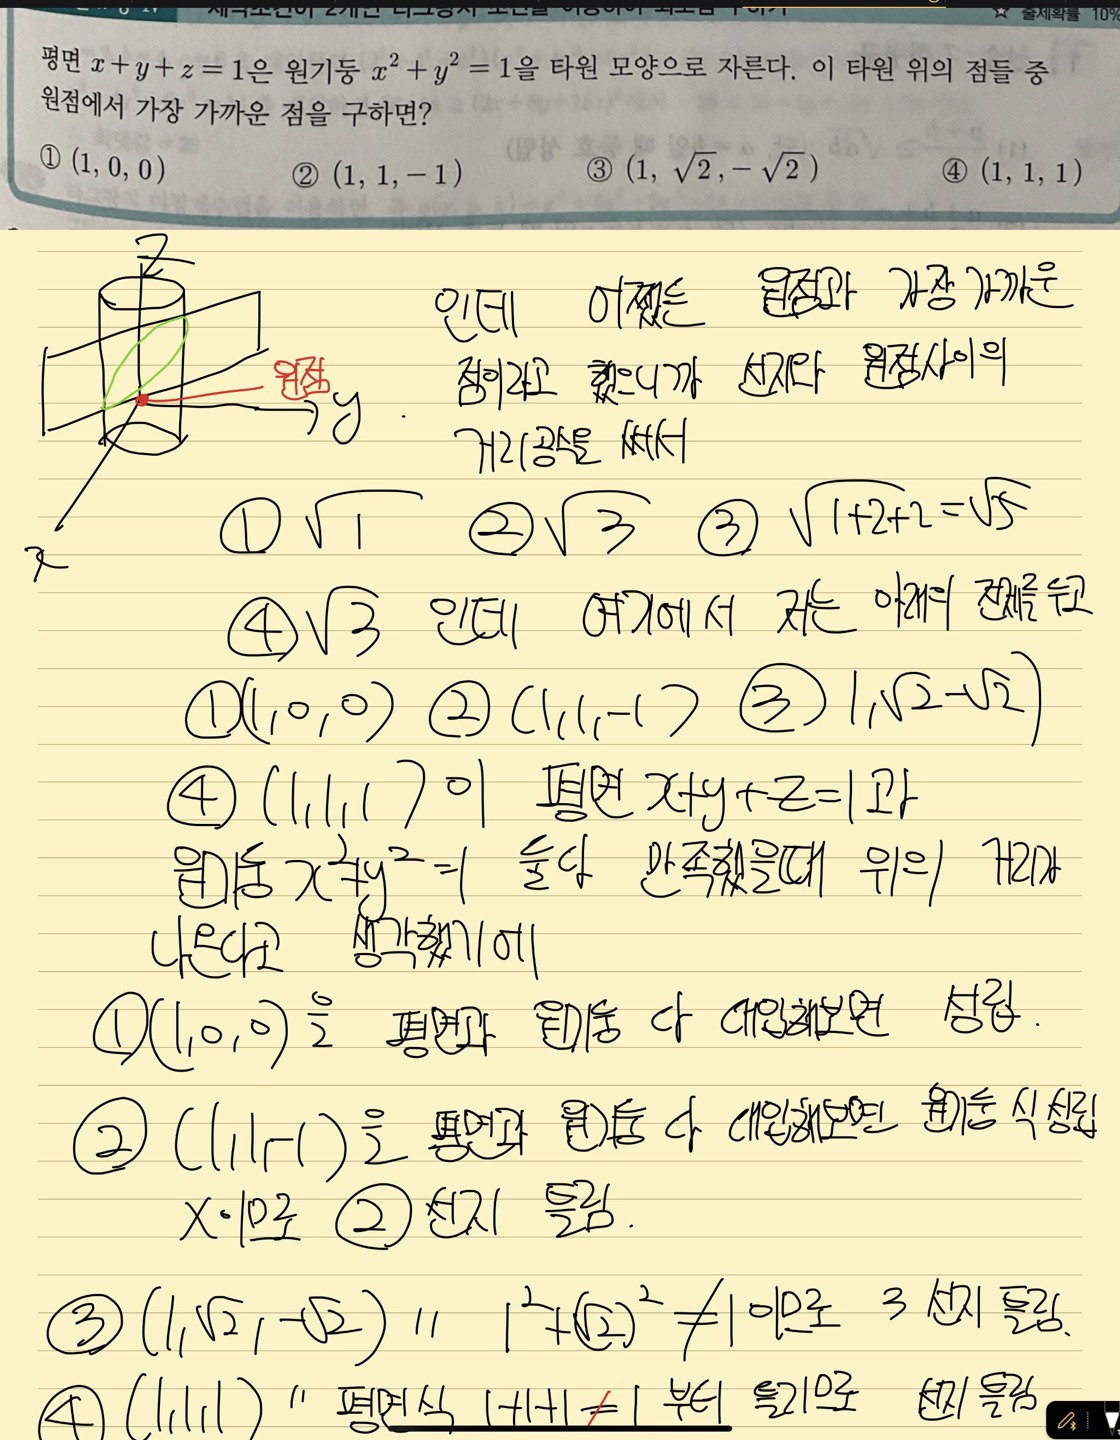 ☆ 출제확률 10%
평면 x+y+z=1은 원기둥 x²+y²=1을 타원 모양으로 자른다. 이 타원 위의 점들 중
원점에서 가장 가까운 점을 구하면?
① (1, 0, 0) ② (1, 1, -1) ③ (1, √2, -√2) ④ (1, 1, 1)
z
원점
y
x
인데 어쨌든 원점과 가장 가까운
점이라고 했으니까 선지와 원점사이의
거리공식을 써서
① √1 ② √3 ③ √1+2+2=√5
④ √3 인데 여기에서 저는 아래의 전제를 두고
①(1,0,0) ② (1,1,-1) ③ 1,√2-√2)
④ (1,1,1) 이 평면 x+y+z=1과
원기둥 x²+y²=1 둘다 만족했을때 위의 거리가
나온다고 생각했기에
①(1,0,0)을 평면과 원기둥 다 대입해보면 성립.
② (1,1,-1)을 평면과 원기둥 다 대입해보면 원기둥 식 성립
X.이므로 ② 선지 틀림.
③ (1,√2,-√2) " 1²+(√2)²≠1 이므로 3 선지 틀림.
④ (1,1,1) " 평면식 1+1+1≠1 부터 틀리므로 선지 틀림